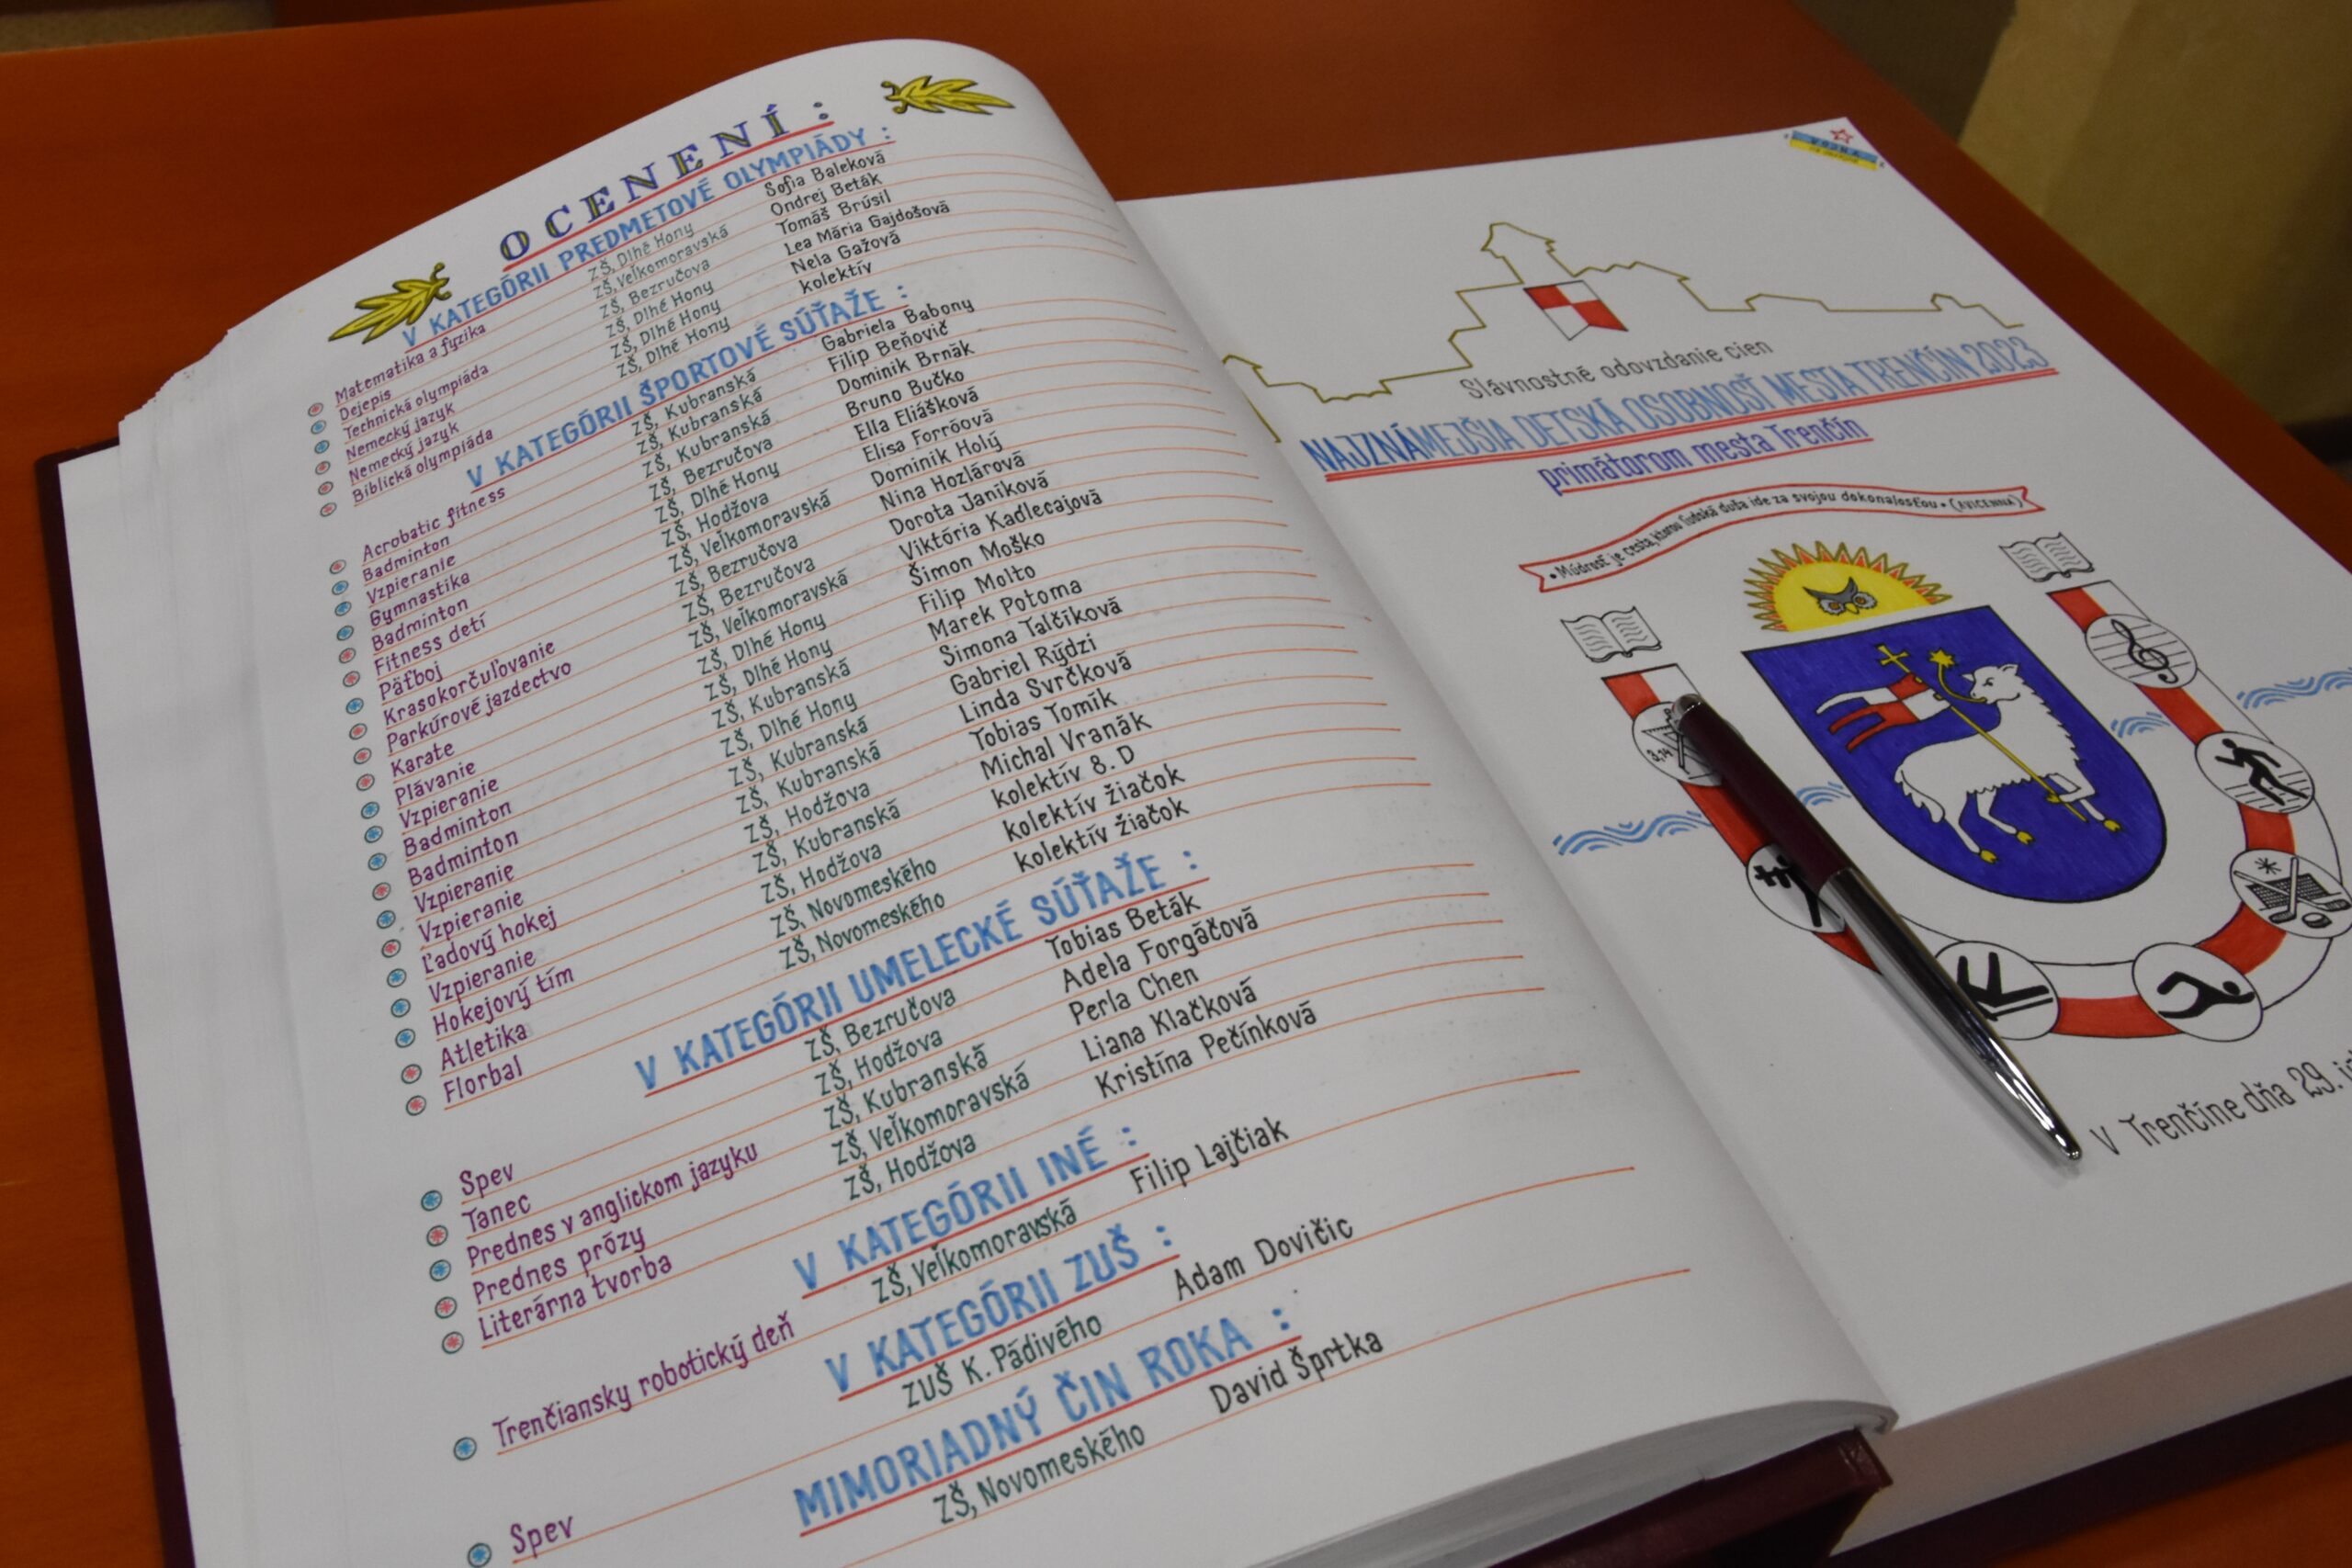 OCENENÍ :
V KATEGÓRII PREDMETOVÉ OLYMPIÁDY :
Matematika a fyzika ZŠ, Dlhé Hony Sofia Baleková
Dejepis ZŠ, Veľkomoravská Ondrej Beták
Technická olympiáda ZŠ, Bezručova Tomáš Brúsil
Nemecký jazyk ZŠ, Dlhé Hony Lea Mária Gajdošová
Nemecký jazyk ZŠ, Dlhé Hony Nela Gažová
Biblická olympiáda ZŠ, Dlhé Hony kolektív
V KATEGÓRII ŠPORTOVÉ SÚŤAŽE :
Acrobatic fitness ZŠ, Kubranská Gabriela Babony
Badminton ZŠ, Kubranská Filip Beňovič
Vzpieranie ZŠ, Kubranská Dominik Brnák
Gymnastika ZŠ, Bezručova Bruno Bučko
Badminton ZŠ, Dlhé Hony Ella Eliášková
Fitness detí ZŠ, Hodžova Elisa Forróová
Päťboj ZŠ, Veľkomoravská Dominik Holý
Krasokorčuľovanie ZŠ, Bezručova Nina Hozlárová
Parkúrové jazdectvo ZŠ, Bezručova Dorota Janíková
Karate ZŠ, Veľkomoravská Viktória Kadlecajová
Plávanie ZŠ, Dlhé Hony Šimon Moško
Vzpieranie ZŠ, Dlhé Hony Filip Molto
Badminton ZŠ, Kubranská Marek Potoma
Badminton ZŠ, Dlhé Hony Simona Talčíková
Vzpieranie ZŠ, Kubranská Gabriel Rýdzi
Vzpieranie ZŠ, Kubranská Linda Svrčková
Ľadový hokej ZŠ, Hodžova Tobias Tomík
Vzpieranie ZŠ, Kubranská Michal Vranák
Hokejový tím ZŠ, Hodžova kolektív 8. D
Atletika ZŠ, Novomeského kolektív žiačok
Florbal ZŠ, Novomeského kolektív žiačok
V KATEGÓRII UMELECKÉ SÚŤAŽE :
Spev ZŠ, Bezručova Tobias Beták
Tanec ZŠ, Hodžova Adela Forgáčová
Prednes v anglickom jazyku ZŠ, Kubranská Perla Chen
Prednes prózy ZŠ, Veľkomoravská Liana Klačková
Literárna tvorba ZŠ, Hodžova Kristína Pečínková
V KATEGÓRII INÉ :
Trenčiansky robotický deň ZŠ, Veľkomoravská Filip Lajčiak
V KATEGÓRII ZUŠ :
Spev ZUŠ K. Pádivého Adam Dovičic
MIMORIADNÝ ČIN ROKA :
ZŠ, Novomeského David Šprtka
VOJNA
Slávnostné odovzdanie cien
NAJZNÁMEJŠIA DETSKÁ OSOBNOSŤ MESTA TRENČÍN 2023
primátorom mesta Trenčín
• Múdrosť je cesta, ktorou ľudská duša ide za svojou dokonalosťou • (AVICENNA)
3,14
V Trenčíne dňa 29.